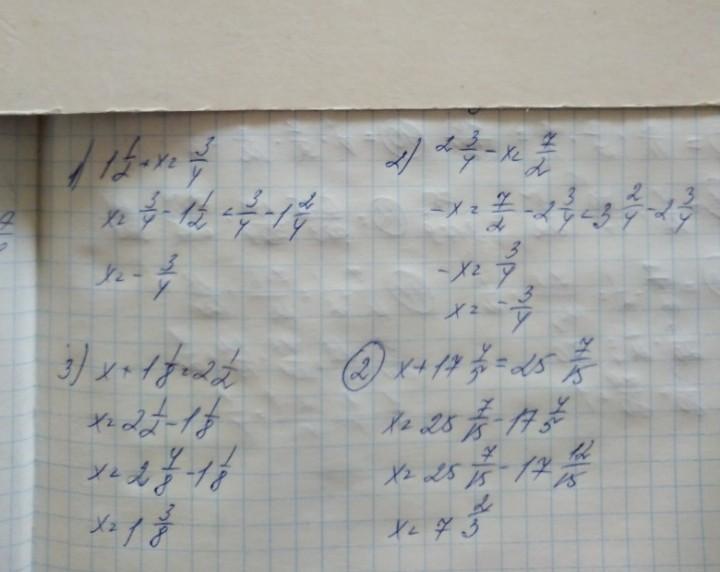 1) 1 1/2 + x = 3/4
x = 3/4 - 1 1/2 = 3/4 - 1 2/4
x = - 3/4
2) 2 3/4 - x = 7/2
-x = 7/2 - 2 3/4 = 3 2/4 - 2 3/4
-x = 3/4
x = - 3/4
3) x + 1 1/8 = 2 1/2
x = 2 1/2 - 1 1/8
x = 2 4/8 - 1 1/8
x = 1 3/8
2 x + 17 4/5 = 25 7/15
x = 25 7/15 - 17 4/5
x = 25 7/15 - 17 12/15
x = 7 2/3